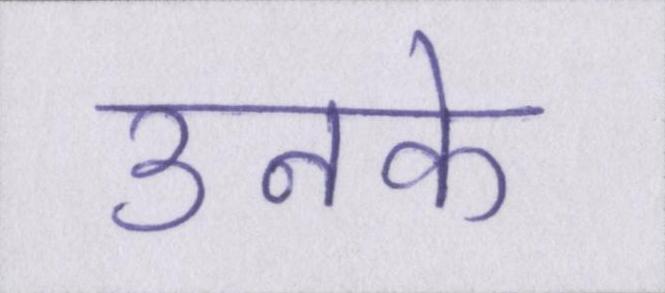 उनके